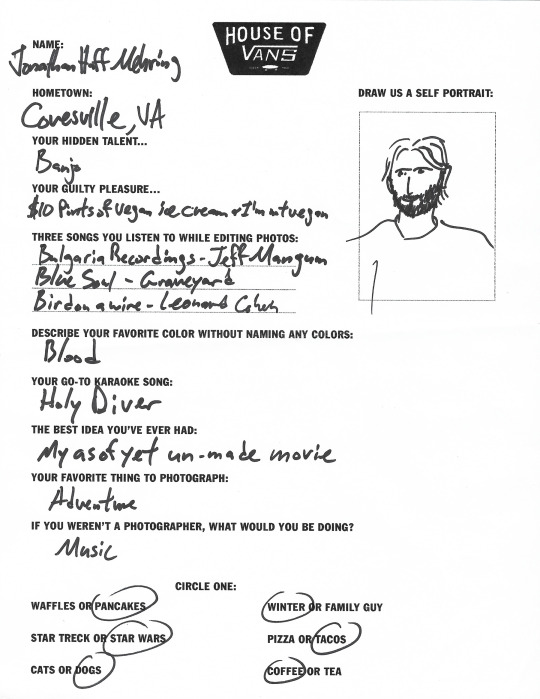 HOUSE OF
VANS
NAME:
Jonathan Huff Mehring
HOMETOWN:
Covesville, VA
DRAW US A SELF PORTRAIT:
YOUR HIDDEN TALENT...
Banjo
YOUR GUILTY PLEASURE...
$10 Pints of vegan ice cream & I'm not vegan
THREE SONGS YOU LISTEN TO WHILE EDITING PHOTOS:
Bulgaria Recordings - Jeff Mangum
Blue Soul - Graveyard
Bird on a wire - Leonard Cohen
DESCRIBE YOUR FAVORITE COLOR WITHOUT NAMING ANY COLORS:
Blood
YOUR GO-TO KARAOKE SONG:
Holy Diver
THE BEST IDEA YOU'VE EVER HAD:
My as of yet un-made movie
YOUR FAVORITE THING TO PHOTOGRAPH:
Adventure
IF YOU WEREN'T A PHOTOGRAPHER, WHAT WOULD YOU BE DOING?
Music
CIRCLE ONE:
WAFFLES OR PANCAKES
WINTER OR FAMILY GUY
STAR TRECK OR STAR WARS
PIZZA OR TACOS
CATS OR DOGS
COFFEE OR TEA